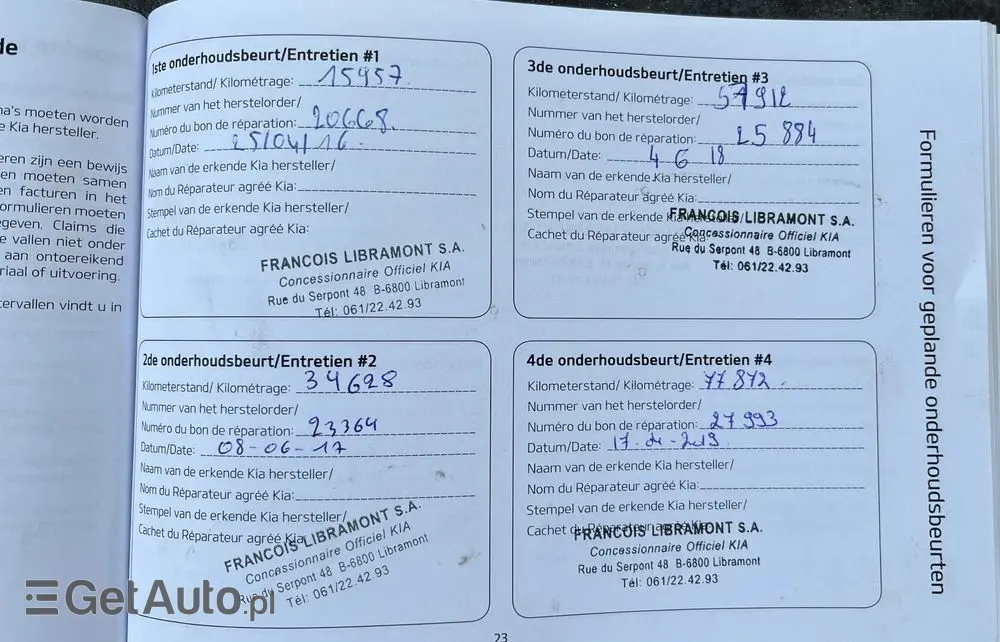 de
na's moeten worden
e Kia hersteller.
eren zijn een bewijs
en moeten samen
en facturen in het
ormulieren moeten
egeven. Claims die
e vallen niet onder
aan ontoereikend
riaal of uitvoering.
tervallen vindt u in
1ste onderhoudsbeurt/Entretien #1
Kilometerstand/ Kilométrage: 15957
Nummer van het herstelorder/
Numéro du bon de réparation: 20668
Datum/Date: 25/04/16
Naam van de erkende Kia hersteller/
Nom du Réparateur agréé Kia:
Stempel van de erkende Kia hersteller/
Cachet du Réparateur agréé Kia:
FRANCOIS LIBRAMONT S.A.
Concessionnaire Officiel KIA
Rue du Serpont 48 B-6800 Libramont
Tél: 061/22.42.93
2de onderhoudsbeurt/Entretien #2
Kilometerstand/ Kilométrage: 34628
Nummer van het herstelorder/
Numéro du bon de réparation: 23364
Datum/Date: 08-06-17
Naam van de erkende Kia hersteller/
Nom du Réparateur agréé Kia:
Stempel van de erkende Kia hersteller/
Cachet du Réparateur agréé Kia:
FRANCOIS LIBRAMONT S.A.
Concessionnaire Officiel KIA
Rue du Serpont 48 B-6800 Libramont
Tél: 061/22.42.93
3de onderhoudsbeurt/Entretien #3
Kilometerstand/ Kilométrage: 57912
Nummer van het herstelorder/
Numéro du bon de réparation: 25 884
Datum/Date: 4 6 18
Naam van de erkende Kia hersteller/
Nom du Réparateur agréé Kia:
Stempel van de erkende Kia hersteller/
Cachet du Réparateur agréé Kia:
FRANCOIS LIBRAMONT S.A.
Concessionnaire Officiel KIA
Rue du Serpont 48 B-6800 Libramont
Tél: 061/22.42.93
4de onderhoudsbeurt/Entretien #4
Kilometerstand/ Kilométrage: 77872
Nummer van het herstelorder/
Numéro du bon de réparation: 27993
Datum/Date:
Naam van de erkende Kia hersteller/
Nom du Réparateur agréé Kia:
Stempel van de erkende Kia hersteller/
Cachet du Réparateur agréé Kia
FRANCOIS LIBRAMONT S.A.
Concessionnaire Officiel KIA
Rue du Serpont 48 B-6800 Libramont
Tél: 061/22.42.93
Formulieren voor geplande onderhoudsbeurten
23
GetAuto.pl